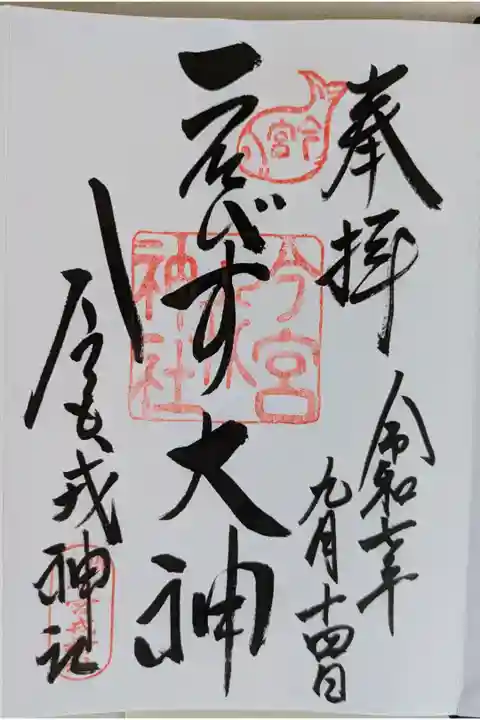 奉拝
令和七年
九月十四日
ゑびす大神
今宮戎神社
今宮
今宮
戎
神社